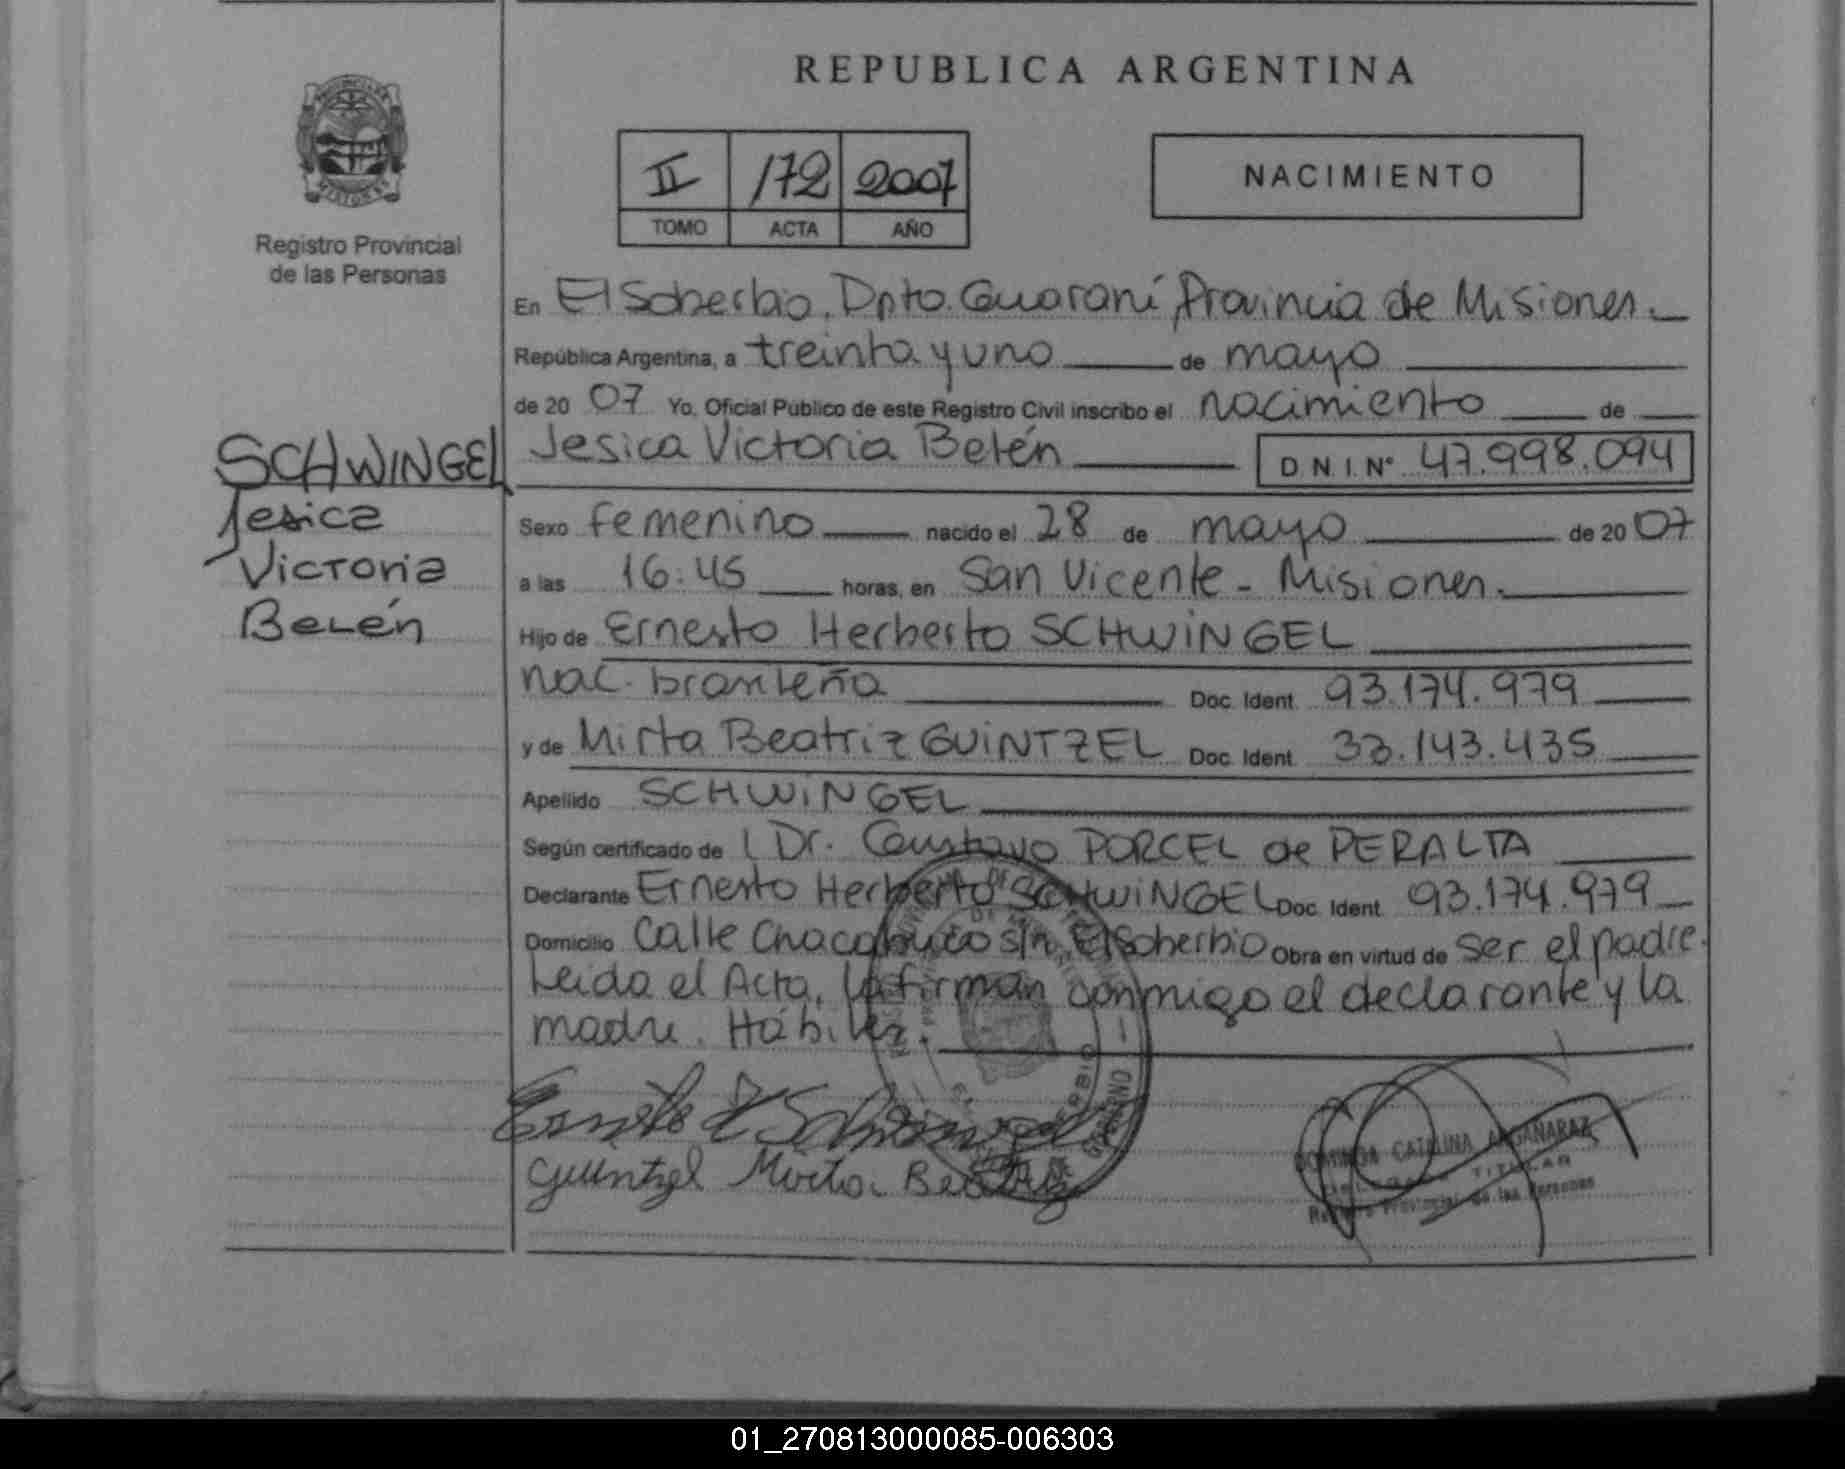 REPUBLICA ARGENTINA
II 172 2007
TOMO ACTA AÑO
NACIMIENTO
PROVINCIA DE
MISIONES
Registro Provincial
de las Personas
En El Soberbio, Dpto. Guaraní, Provincia de Misiones.
República Argentina, a treinta y uno de mayo
de 20 07 Yo, Oficial Público de este Registro Civil inscribo el nacimiento de
Jesica Victoria Belén D.N.I.Nº 47.998.094
SCHWINGEL
Jesica
Victoria
Belén
Sexo femenino nacido el 28 de mayo de 20 07
a las 16:45 horas, en San Vicente - Misiones.
Hijo de Ernesto Herberto SCHWINGEL
nac. brasileña Doc. Ident. 93.174.979
y de Mirta Beatriz GUINTZEL Doc. Ident. 33.143.435
Apellido SCHWINGEL
Según certificado de l Dr. Gustavo PORCEL de PERALTA
Declarante Ernesto Herberto SCHWINGEL Doc. Ident. 93.174.979
Domicilio Calle Chacabuco s/n, El Soberbio Obra en virtud de ser el padre.
Leída el Acta, la firman conmigo el declarante y la
madre. Hábiles.
Ernesto H Schwingel
Guintzel Mirta Beatriz
CATALINA ARGAÑARAZ
TITULAR
Registro Provincial de las Personas
01_270813000085-006303